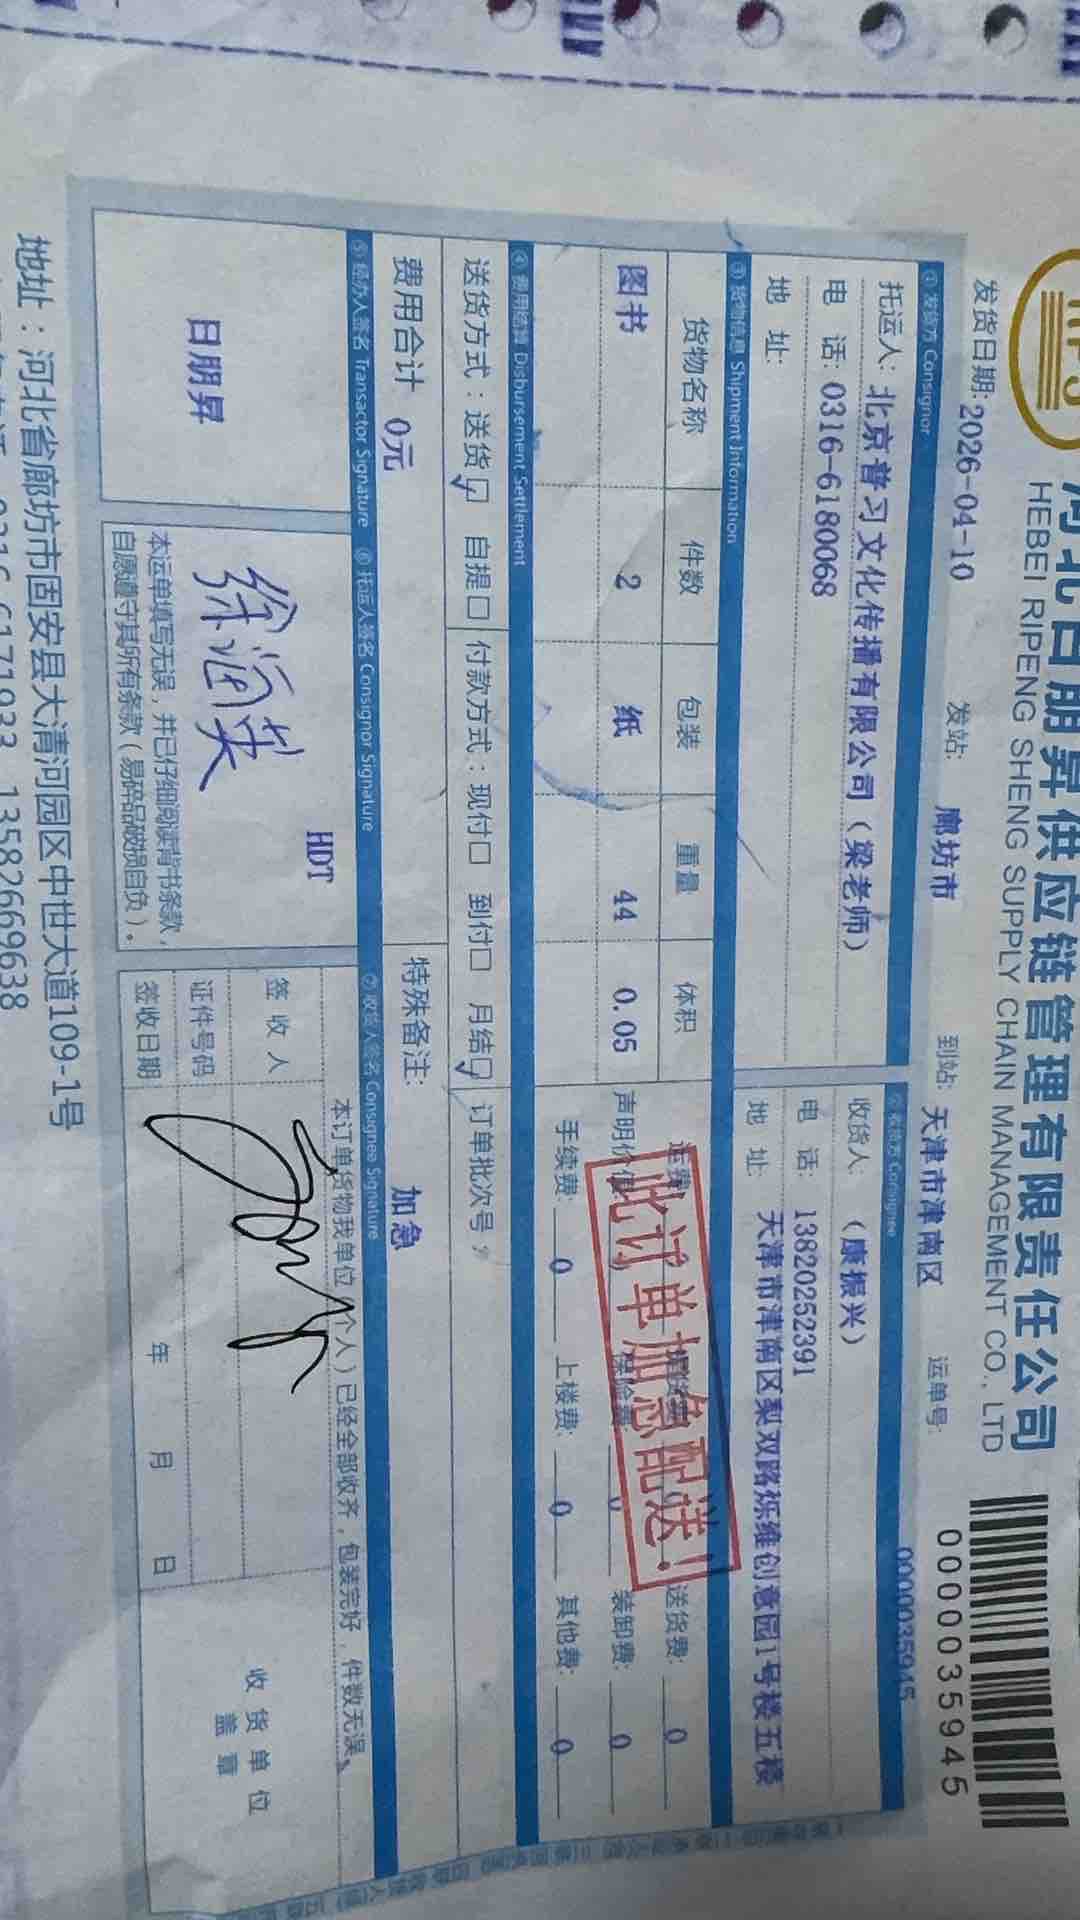 河北日朋昇供应链管理有限责任公司
HEBEI RIPENG SHENG SUPPLY CHAIN MANAGEMENT CO., LTD
0000035945
发货日期:2026-04-10 发站: 廊坊市 到站: 天津市津南区 运单号: 0000035945
① 发货方 Consignor
托运人: 北京普习文化传播有限公司（梁老师）
电 话: 0316-6180068
地 址:
② 收货方 Consignee
收货人: （康振兴）
电 话: 13820252391
地 址: 天津市津南区梨双路烁维创意园1号楼五楼
③ 货物信息 Shipment Information
货物名称 件数 包装 重量 体积
图书 2 纸 44 0.05
运费 送货费: 0
声明价值 保险费: 0 装卸费: 0
手续费: 0 上楼费: 0 其他费: 0
此订单加急配送!
④ 费用结算 Disbursement Settlement
送货方式：送货☑ 自提□ 付款方式：现付□ 到付□ 月结☑ 订单批次号:
费用合计 0元 特殊备注: 加急
⑤ 经办人签名 Transactor Signature
日朋昇
⑥ 托运人签名 Consignor Signature
HDT
本运单填写无误，并已仔细阅读背书条款，
自愿遵守其所有条款（易碎品破损自负）。
⑦ 收货人签名 Consignee Signature
本订单货物我单位（个人）已经全部收齐，包装完好，件数无误。
签 收 人
证件号码
签收日期 年 月 日
收 货 单 位
盖 章
地址：河北省廊坊市固安县大清河园区中世大道109-1号
0316-6171933 13582669638